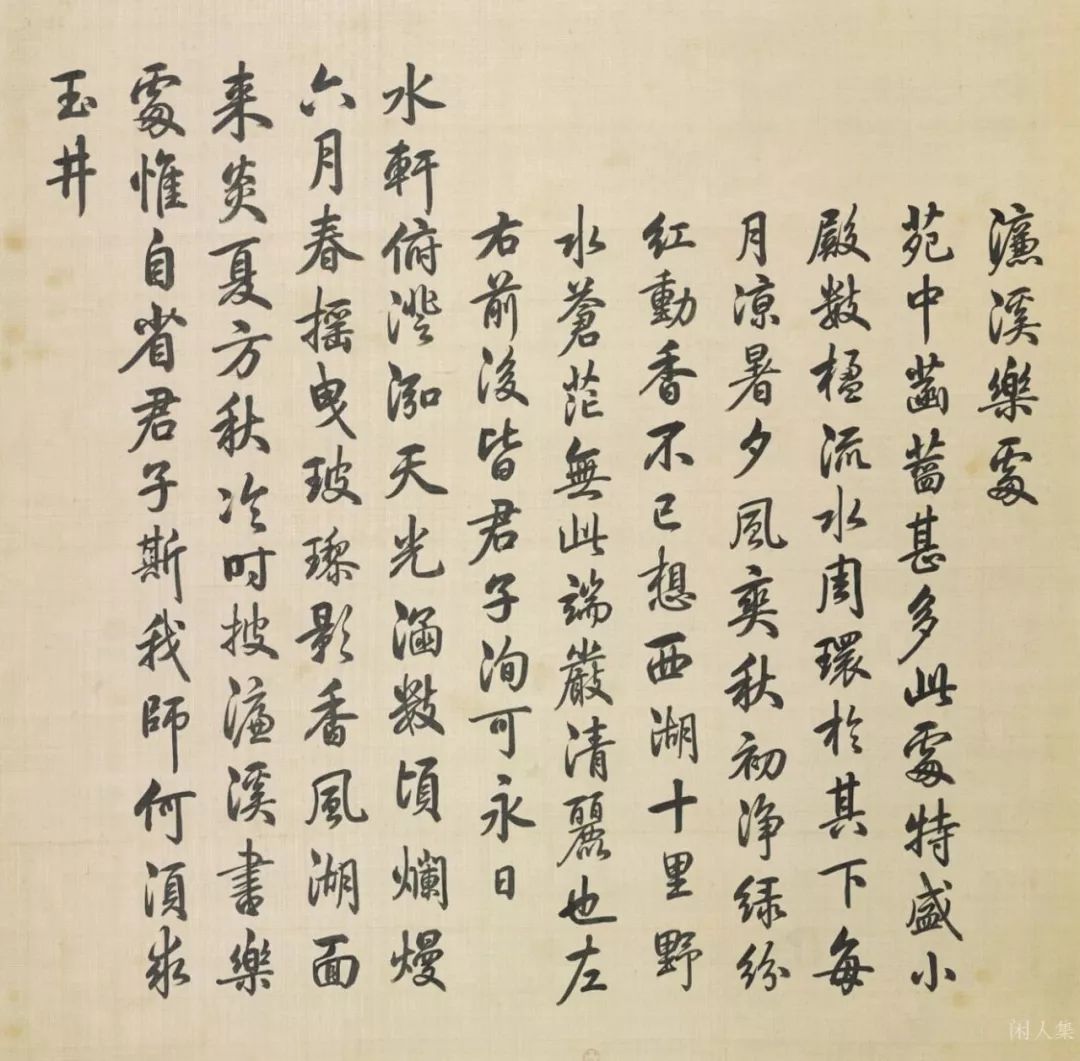 濂溪樂處
苑中菡萏甚多此處特盛小
殿數楹流水周環於其下每
月涼暑夕風爽秋初淨綠紛
紅動香不已想西湖十里野
水蒼茫無此端嚴清麗也左
右前後皆君子洵可永日
水軒俯澄泓天光涵數頃爛熳
六月春搖曳玻瓈影香風湖面
来炎夏方秋冷時披濂溪書樂
處惟自省君子斯我師何須求
玉井
闲人集